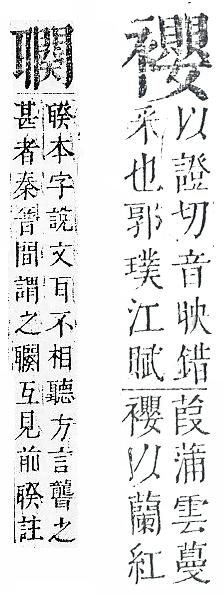 䙬
以證切音映錯
采也郭璞江賦
葭蒲雲蔓
䙬以蘭紅
聧本字說文耳不相聽方言聾之
甚者秦晉間謂之互見前聧註